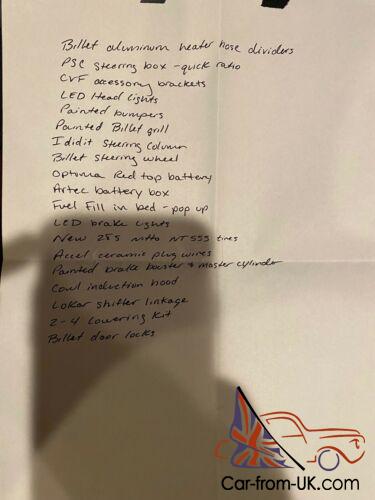 Billet aluminum heater hose dividers
PSC steering box - quick ratio
CVF accessory brackets
LED Head lights
Painted bumpers
Painted Billet grill
Ididit steering column
Billet steering wheel
Optima Red top battery
Artec battery box
Fuel Fill in bed - pop up
LED brake lights
New 255 nitto NT555 tires
Accel ceramic plug wires
Painted brake booster & master cylinder
Cowl induction hood
Lokar shifter linkage
2-4 Lowering Kit
Billet door locks
Car-from-UK.com